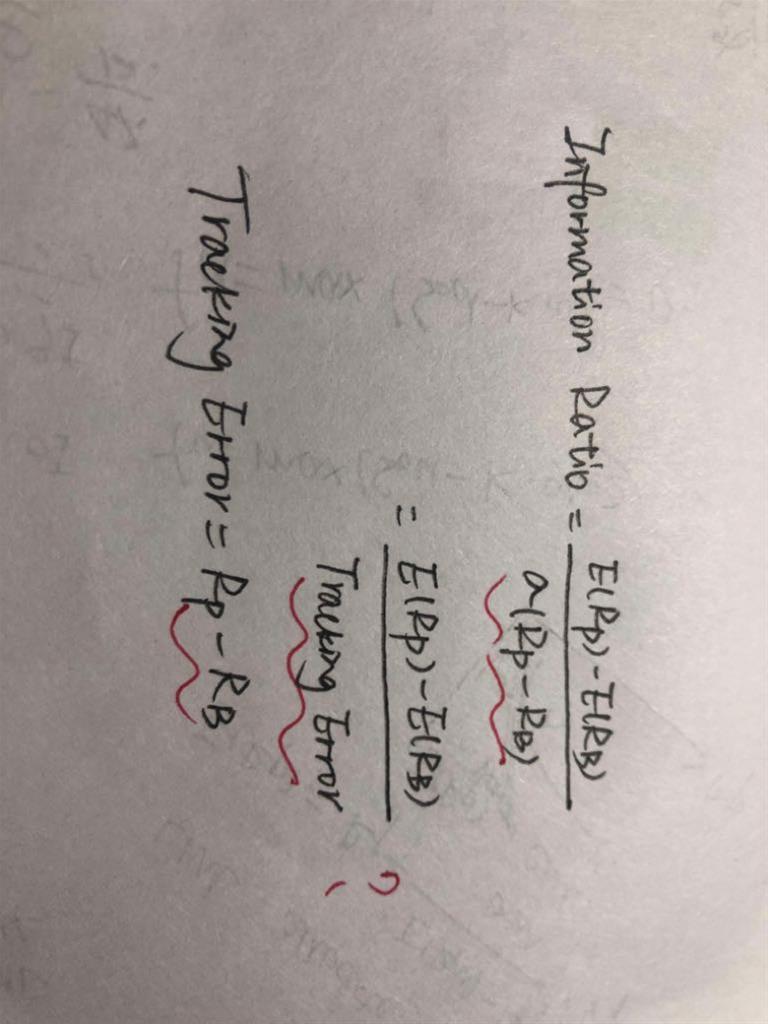 Information Ratio = E(Rp) - E(RB)
a(Rp - RB)
= E(Rp) - E(RB)
Tracking Error ?
Tracking Error = Rp - RB